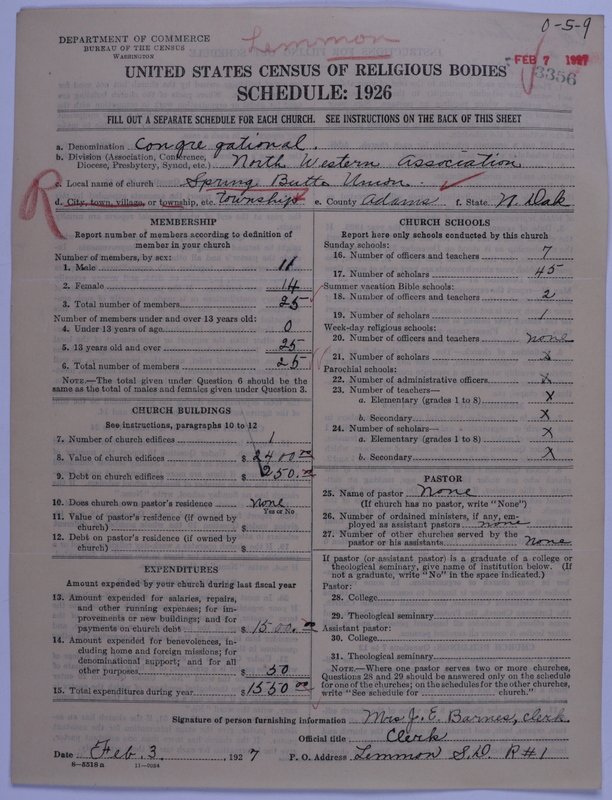 0-5-9
DEPARTMENT OF COMMERCE
BUREAU OF THE CENSUS
WASHINGTON
Lemmon
FEB 7 1927
3356
UNITED STATES CENSUS OF RELIGIOUS BODIES
SCHEDULE: 1926
FILL OUT A SEPARATE SCHEDULE FOR EACH CHURCH. SEE INSTRUCTIONS ON THE BACK OF THIS SHEET
a. Denomination Congregational.
b. Division (Association, Conference, Diocese, Presbytery, Synod, etc.) North Western Association
c. Local name of church Spring Butte Union.
R
d. City, town, village, or township, etc. township e. County Adams f. State N. Dak
MEMBERSHIP
Report number of members according to definition of
member in your church
Number of members, by sex:
1. Male 11
2. Female 14
3. Total number of members 25
Number of members under and over 13 years old:
4. Under 13 years of age 0
5. 13 years old and over 25
6. Total number of members 25
NOTE.—The total given under Question 6 should be
same as the total of males and females given under Question 3.
CHURCH BUILDINGS
See instructions, paragraphs 10 to 12
7. Number of church edifices 1
8. Value of church edifices $ 2400.00
9. Debt on church edifices $ 250.00
10. Does church own pastor's residence none
Yes or No
11. Value of pastor's residence (if owned by
church) $
12. Debt on pastor's residence (if owned by
church) $
EXPENDITURES
Amount expended by your church during last fiscal year
13. Amount expended for salaries, repairs,
and other running expenses; for im-
provements or new buildings; and for
payments on church debt $ 1500.00
14. Amount expended for benevolences, in-
cluding home and foreign missions; for
denominational support; and for all
other purposes $ 50
15. Total expenditures during year $ 1550.00
CHURCH SCHOOLS
Report here only schools conducted by this church
Sunday schools:
16. Number of officers and teachers 7
17. Number of scholars 45
Summer vacation Bible schools:
18. Number of officers and teachers 2
19. Number of scholars 1
Week-day religious schools:
20. Number of officers and teachers none
21. Number of scholars x
Parochial schools:
22. Number of administrative officers x
23. Number of teachers—
a. Elementary (grades 1 to 8) x
b. Secondary x
24. Number of scholars—
a. Elementary (grades 1 to 8) x
b. Secondary x
PASTOR
25. Name of pastor None
(If church has no pastor, write "None")
26. Number of ordained ministers, if any, em-
ployed as assistant pastors none
27. Number of other churches served by the
pastor or his assistants none
If pastor (or assistant pastor) is a graduate of a college or
theological seminary, give name of institution below. (If
not a graduate, write "No" in the space indicated.)
Pastor:
28. College
29. Theological seminary
Assistant pastor:
30. College
31. Theological seminary
NOTE.—Where one pastor serves two or more churches,
Questions 28 and 29 should be answered only on the schedule
for one of the churches; on the schedules for the other churches,
write "See schedule for church."
Signature of person furnishing information Mrs J. E. Barnes, Clerk.
Official title Clerk
Date Feb. 3. 1927 P. O. Address Lemmon S.D. R#1
8-5518a 11-9084